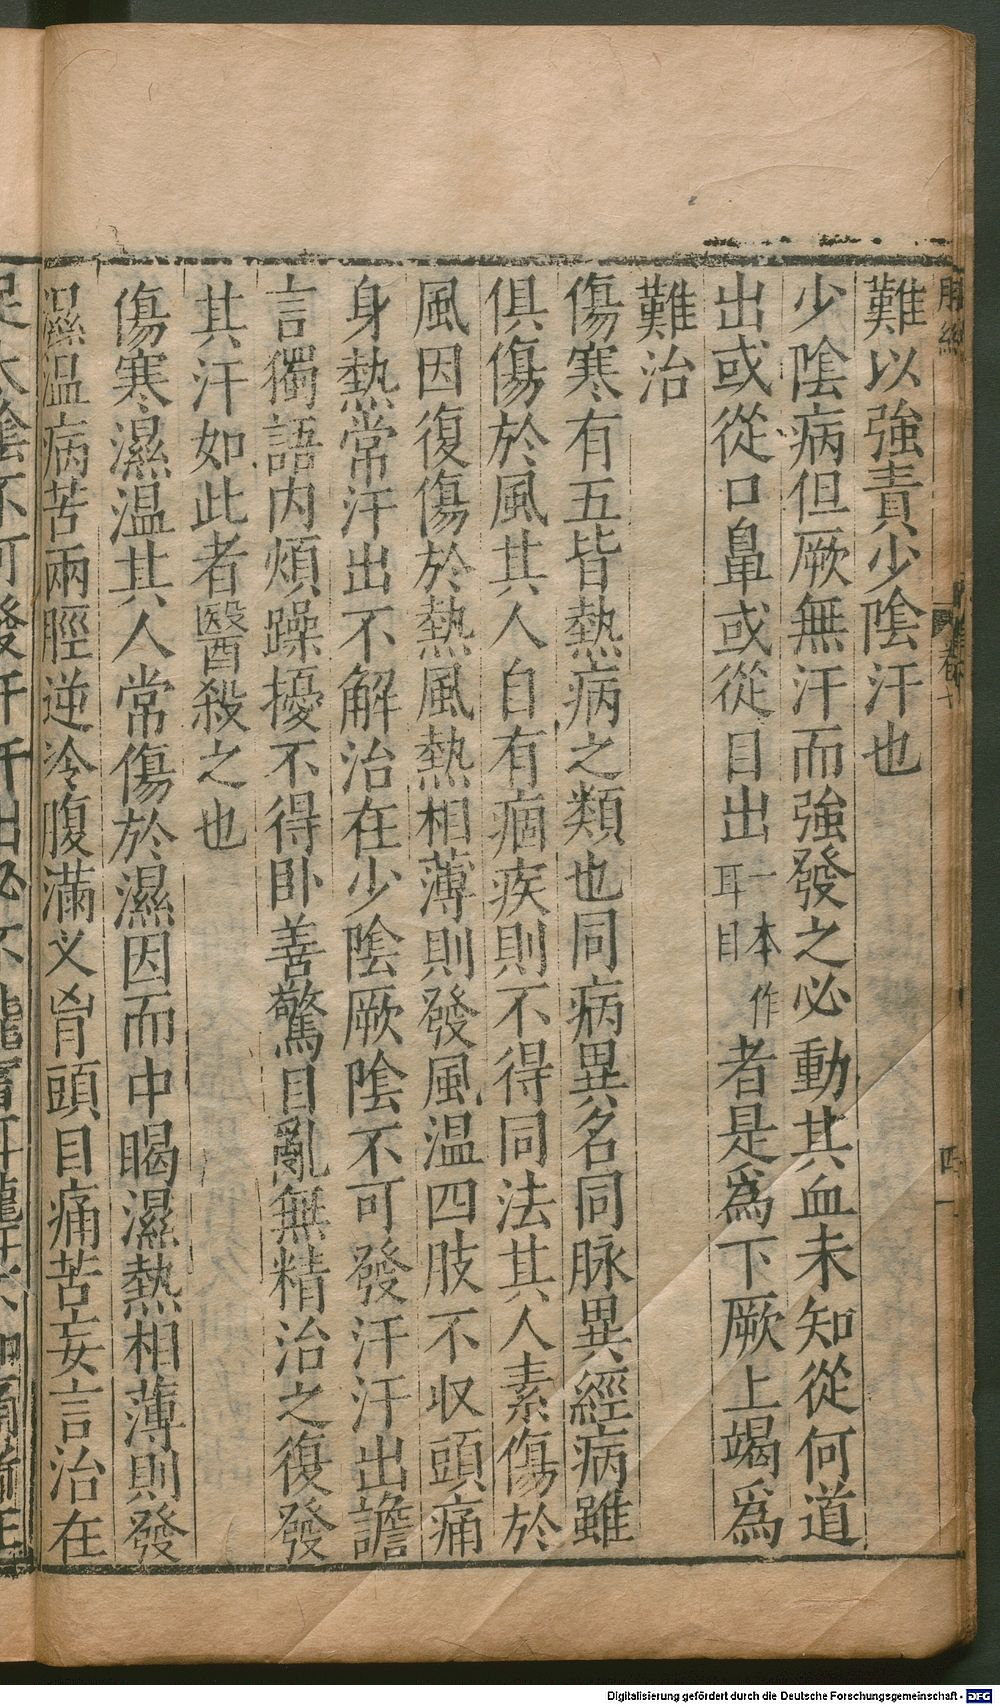 難以強責少陰汗也
少陰病但厥無汗而強發之必動其血未知從何道
出或從口鼻或從目出一本作耳目者是為下厥上竭為
難治
傷寒有五皆熱病之類也同病異名同脉異經病雖
俱傷於風其人自有痼疾則不得同法其人素傷於
風因復傷於熱風熱相薄則發風温四肢不収頭痛
身熱常汗出不解治在少陰厥陰不可發汗汗出譫
言獨語内煩躁擾不得卧善驚目亂無精治之復發
其汗如此者醫殺之也
傷寒濕温其人常傷於濕因而中暍濕熱相薄則發
濕温病苦兩脛逆冷腹滿叉胷頭目痛苦妄言治在
足太陰不可發汗汗出必不能言耳聾不知痛所在
Digitalisierung gefördert durch die Deutsche Forschungsgemeinschaft - DFG